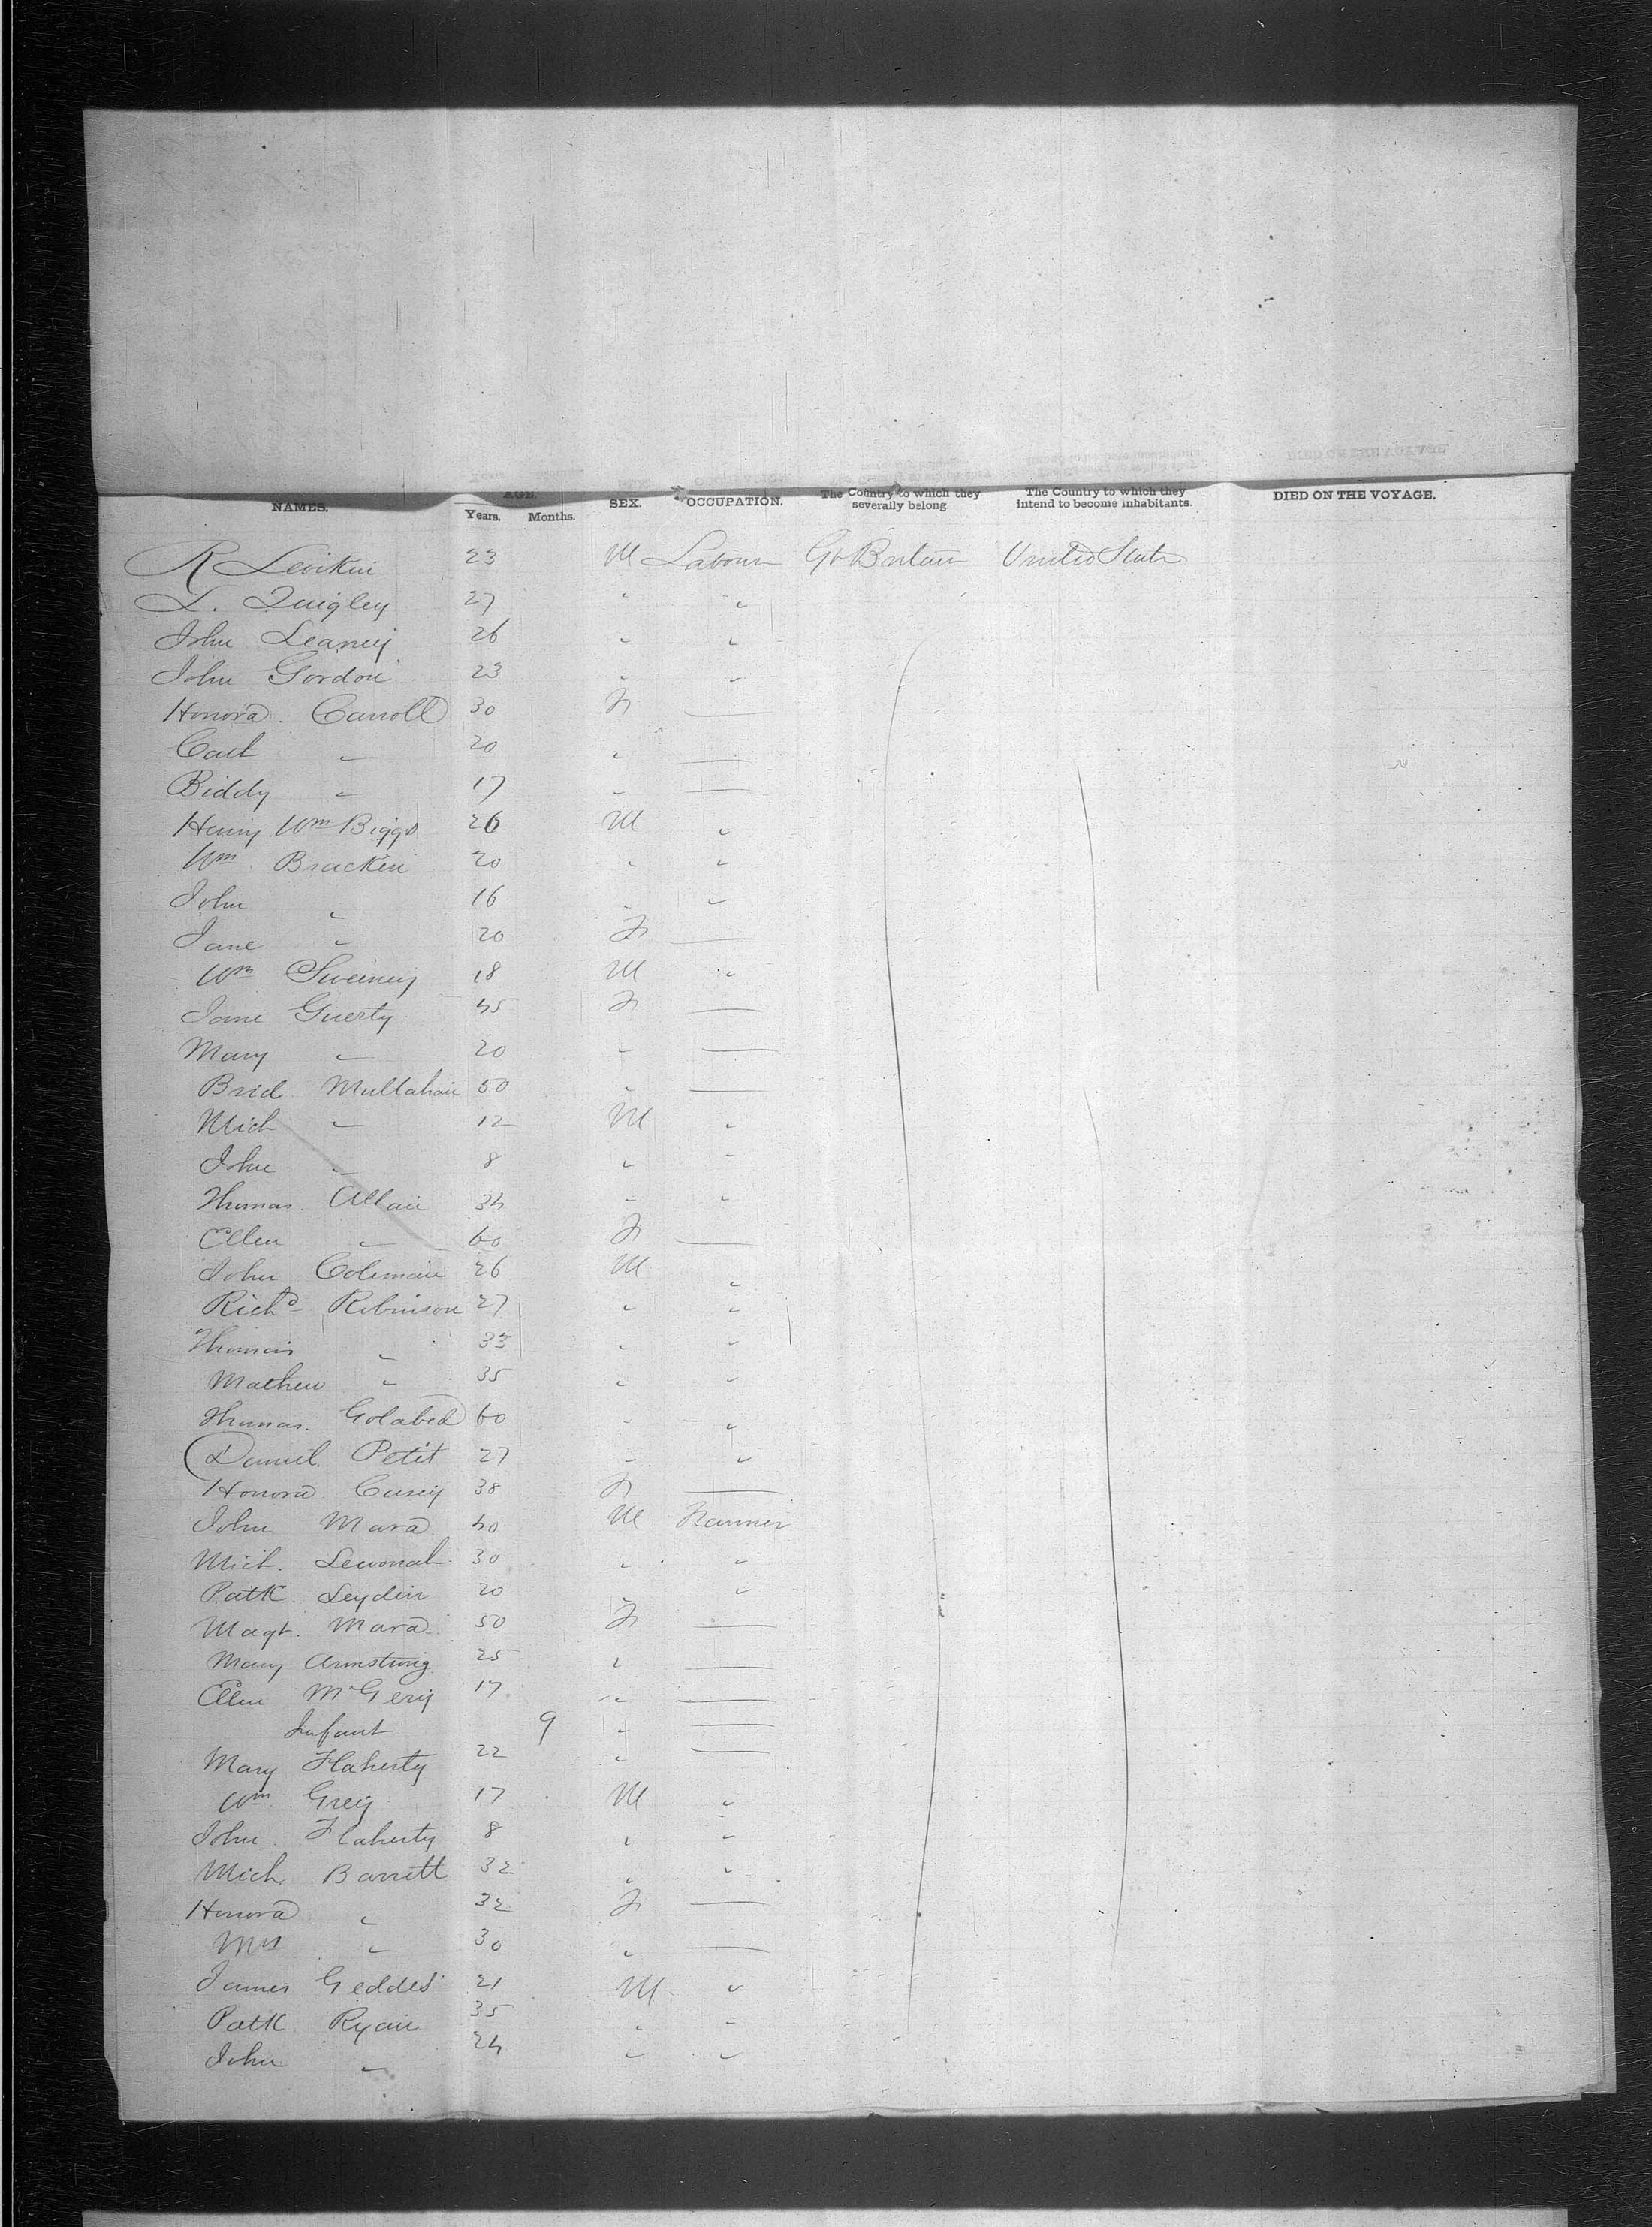 NAMES. AGE. SEX. OCCUPATION. The Country to which they severally belong. The Country to which they intend to become inhabitants. DIED ON THE VOYAGE.
Years. Months.
R 23 M Labour Gt Britain United State
L. Quigley 27 " "
John Leaney 26 " "
John Gordon 23 " "
Honora Carroll 30 F —
Cath " 20 " —
Biddy " 17 " —
Henry Wm Biggs 26 M "
Wm Bracken 20 " "
John " 16 " "
Jane " 20 F —
Wm Sweeney 18 M "
Jane Guerty 45 F —
Mary " 20 " —
Brid Mullahan 50 " —
Mich " 12 M "
John " 8 " "
Thomas 34 " "
Ellen " 60 F —
John Coleman 26 M "
Richd Robinson 27 " "
Thomas " 33 " "
Mathew " 35 " "
Thomas 60 " "
Daniel Petit 27 " "
Honora Casey 38 F —
John Mara 40 M Farmer
Mich. 30 " "
Patk. Leyden 20 " "
Magt. Mara 50 F —
Mary Armstrong 25 " —
Ellen 17 " —
Infant 9 " —
Mary Flaherty 22 " —
Wm Grey 17 M "
John Flaherty 8 " "
Mich Barrett 32 " "
Honora " 32 F —
Mrs " 30 " —
James Geddes 21 M "
Patk Ryan 35 " "
John " 24 " "